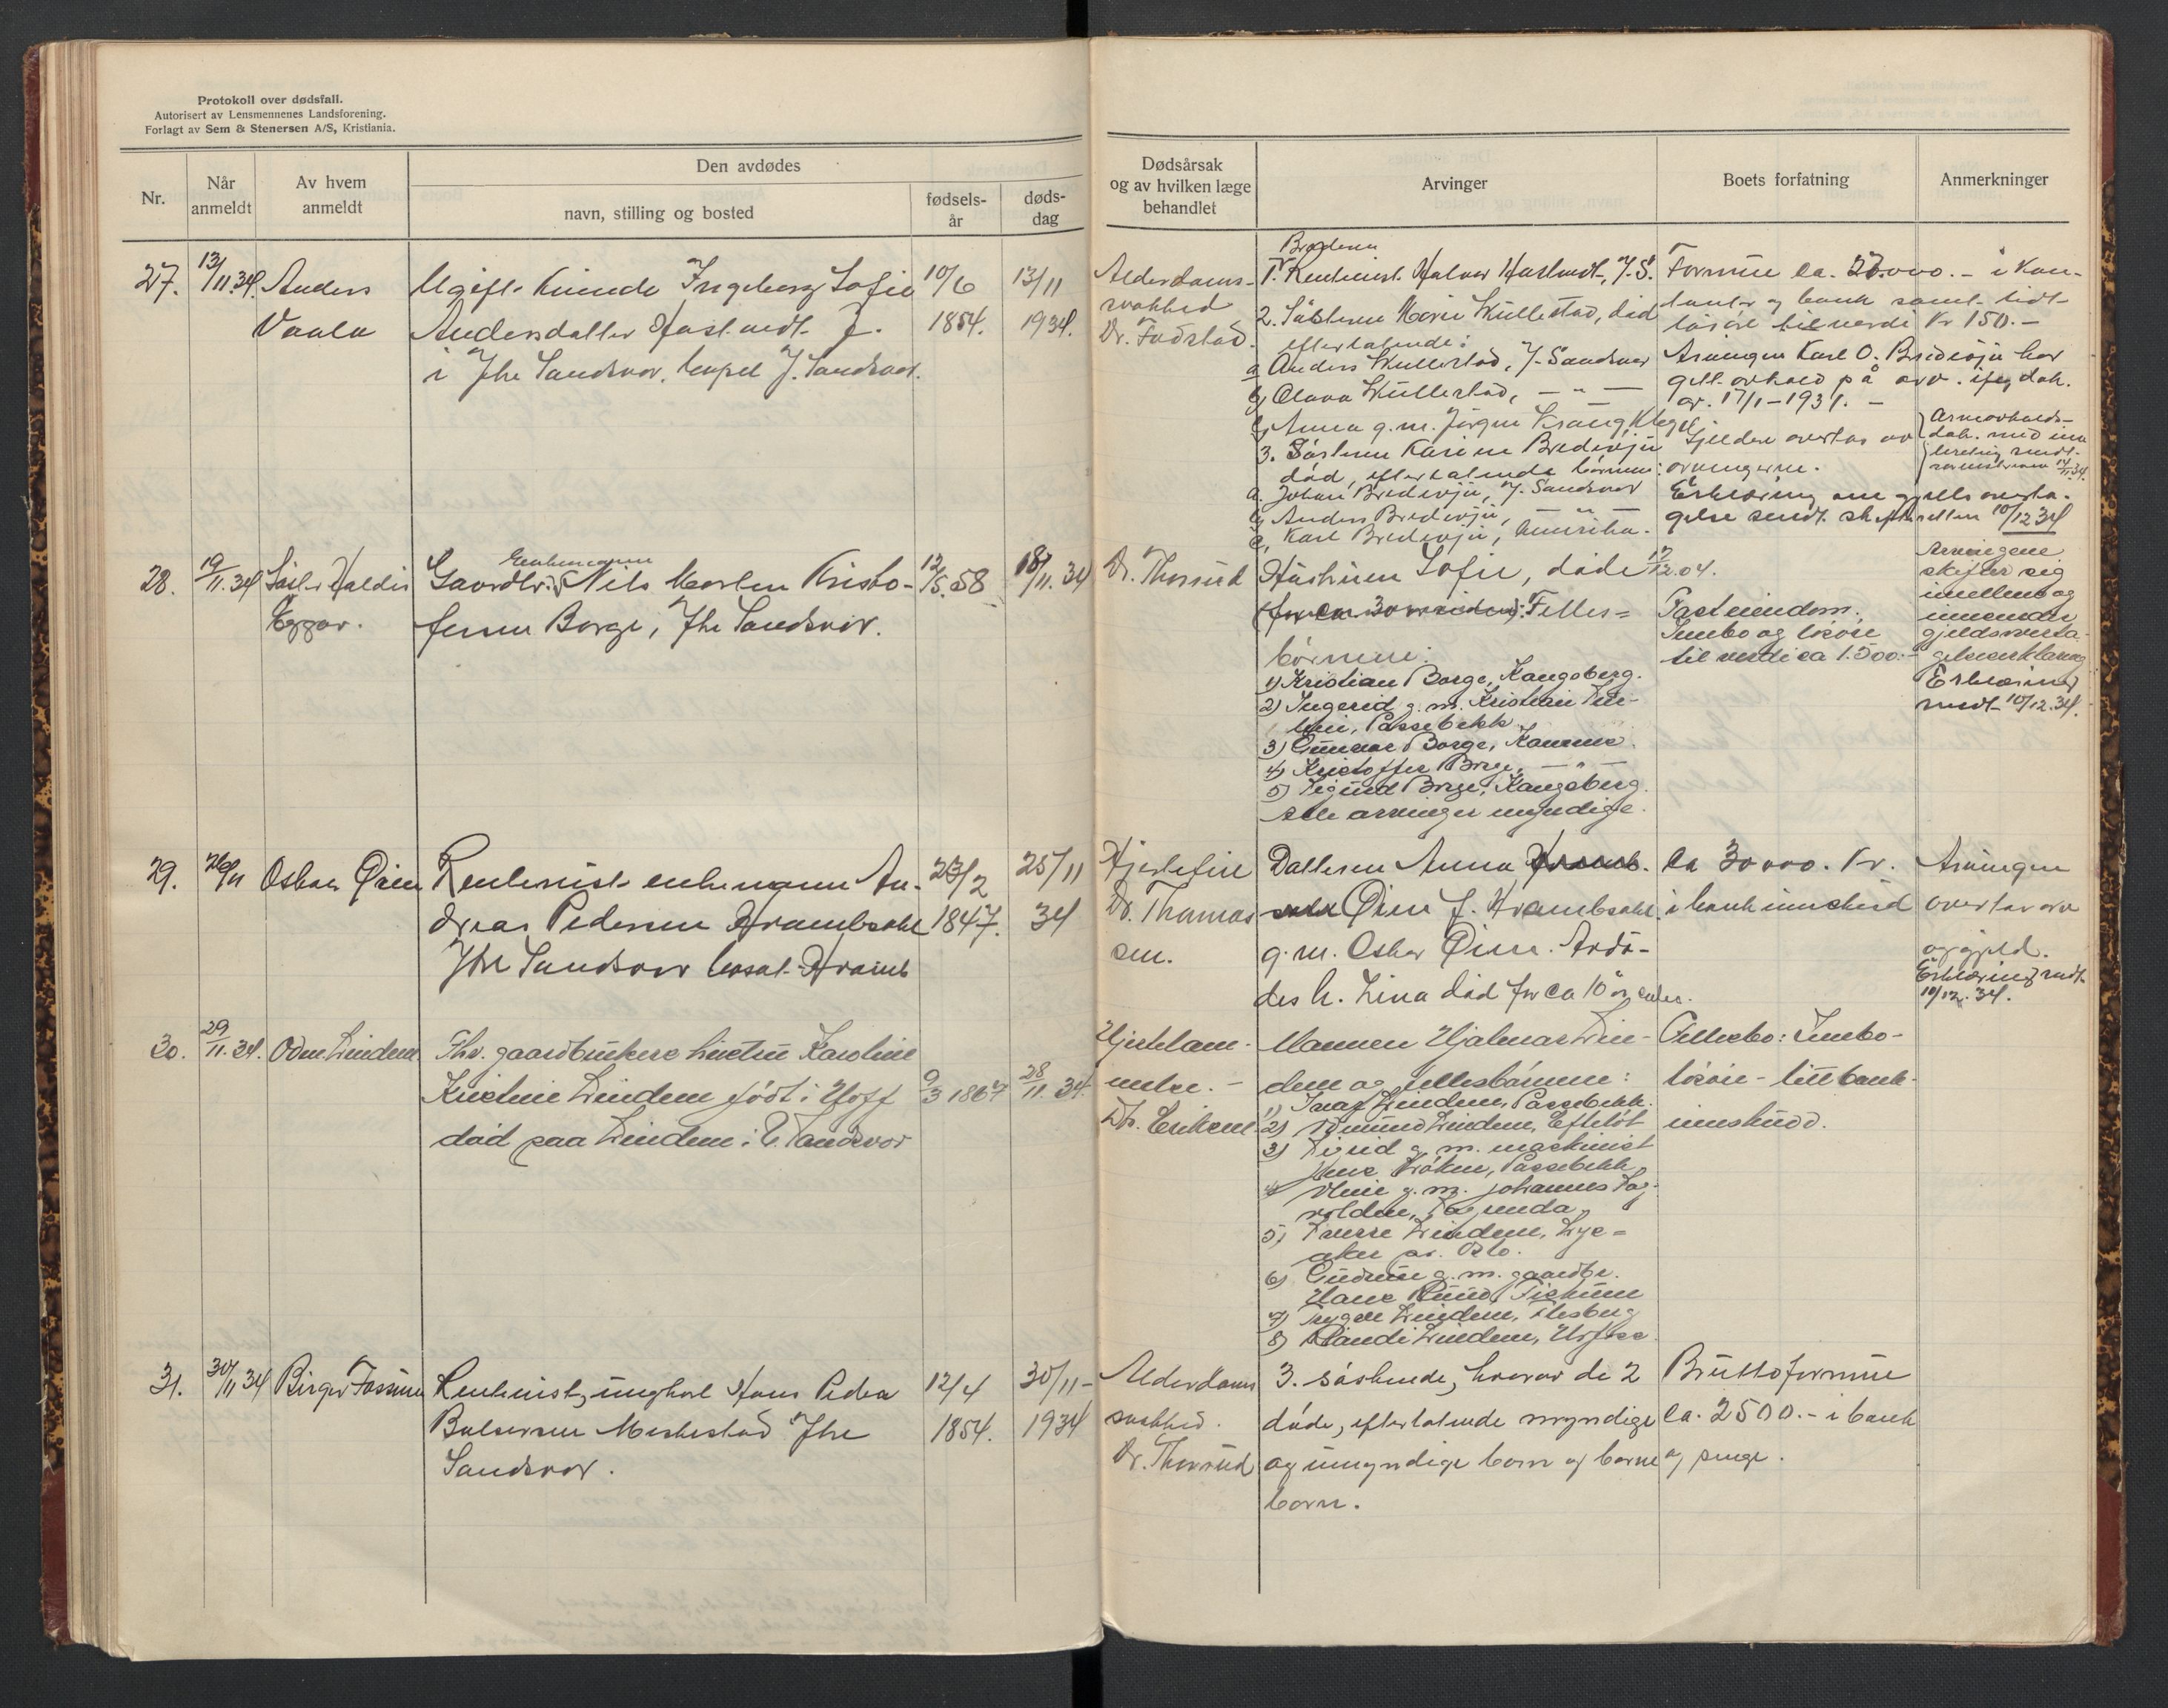 Protokoll over dødsfall.
Autorisert av Lensmennenes Landsforening.
Forlagt av Sem & Stenersen A/S, Kristiania.
Nr.
Når anmeldt
Av hvem anmeldt
Den avdødes
navn, stilling og bosted
fødsels-år
døds-dag
Dødsårsak og av hvilken læge behandlet
Arvinger
Boets forfatning
Anmerkninger
27.
13/11.34.
Anders
Vaala
Ugift Kvinde Ingeborg Sofie
Andersdatter
i Ytre Sandsvær. Y. Sandsvær.
10/6
1854.
13/11
1934.
Alderdoms-
svakhed
Dr.
Broderen
1. Rentenist Halvor Y. S.
2. Søsteren Maren Kullestad, død
efterlatende:
a Anders Kullestad, Y. Sandsvær
b, Olava Kullestad, — " —
c, Anna g. m. Jørgen
3. Søsteren Karine Bredesju
død, efterlatende børnene:
a. Johan Bredesju, Y. Sandsvær
b, Anders Bredesju, — " —
c, Karl Bredesju, Amerika.
Formue ca. 27.000.- i kon-
tanter og bank samt lidt
løsøre til verdi Kr 150.-
Arvingen Karl O. Bredesju har
på arv. iføg dok.
av. 17/1-1931. -
Gjelden overtas av
arvingerne.
Erklæring om gjells overta-
gelse sendt skifteretten 10/12 34
28.
19/11.34
Haldis
Eggar.
Enkemann
Gaardbr. Nils Martin Kristo-
fersen Borge, Ytre Sandsvær.
12/5.58
18/11.34
Dr. Thorrud
Hustruen Sofie, døde 17/12.04.
Felles=
børnene:
1) Kristian Borge, Kongsberg.
2) Ingerid g. m. Kristian
Passebekk
3) Gunnar Borge,
4) Kristoffer Borge, — " —
5) Sigurd Borge, Kongsberg.
Alle arvinger myndige.
Fast eiendom.
Innbo og løsøre
til verdi ca 1.500.-
Arvingene
skifter sig
imellem og
innsender
gjeldsoverta-
gelseserklæring
Erklæring
sendt 10/12.34.
29.
26/11
Oskar Øien
Rentenist enkemann An-
dreas Pedersen Hrambsahl
Ytre Sandsvær
23/2
1847.
25/11
34
Hjertefeil
Dr. Thomas
sen.
Datteren Anna
Øien f. Hrambsahl.
g. m. Oskar Øien. Avdø-
des h. Lina død for ca 10 år siden.
Ca 30000. Kr.
i bankinnskud
Arvingen
overtar arv
og gjeld.
Erklæring sendt
10/12. 34.
30.
29/11.34.
Oden Lindem
Fhv. gaardbrukers hustru Karoline
Kristine Lindem født i Hoff
død paa Lindem i Y. Sandsvær
9/3 1867
28/11. 34.
Hjertelam-
melse. -
Dr. Eriksen
Mannen Hjalmar Lin-
dem og fellesbørnene:
1) Ivar Lindem, Passebekk.
2) Lindem, Efteløt
3) Sigrid g. m. maskinist
Passebekk
4) g. m. Johannes
5) Sverre Lindem, Lys=
aker pr. Oslo.
6) Gudrun g. m. gaardbr.
Hans Ruud, Fiskum
7) Trygve Lindem, Flesberg
8) Randi Lindem,
Fellesbo: Innbo-
løsøre - litt bank-
innskudd.
31.
30/11 34
Birger Fossum
Rentenist, ungkarl Hans Peder
Balsersen Meskestad Ytre
Sandsvær.
12/4
1854.
30/11-
1934
Alderdoms
svakhed.
Dr. Thorrud
3. søskende, hvorav de 2
døde, efterlatende myndige
og umyndige barn og barne
barn.
Bruttoformue
Ca. 2500.- i bank
og penge.